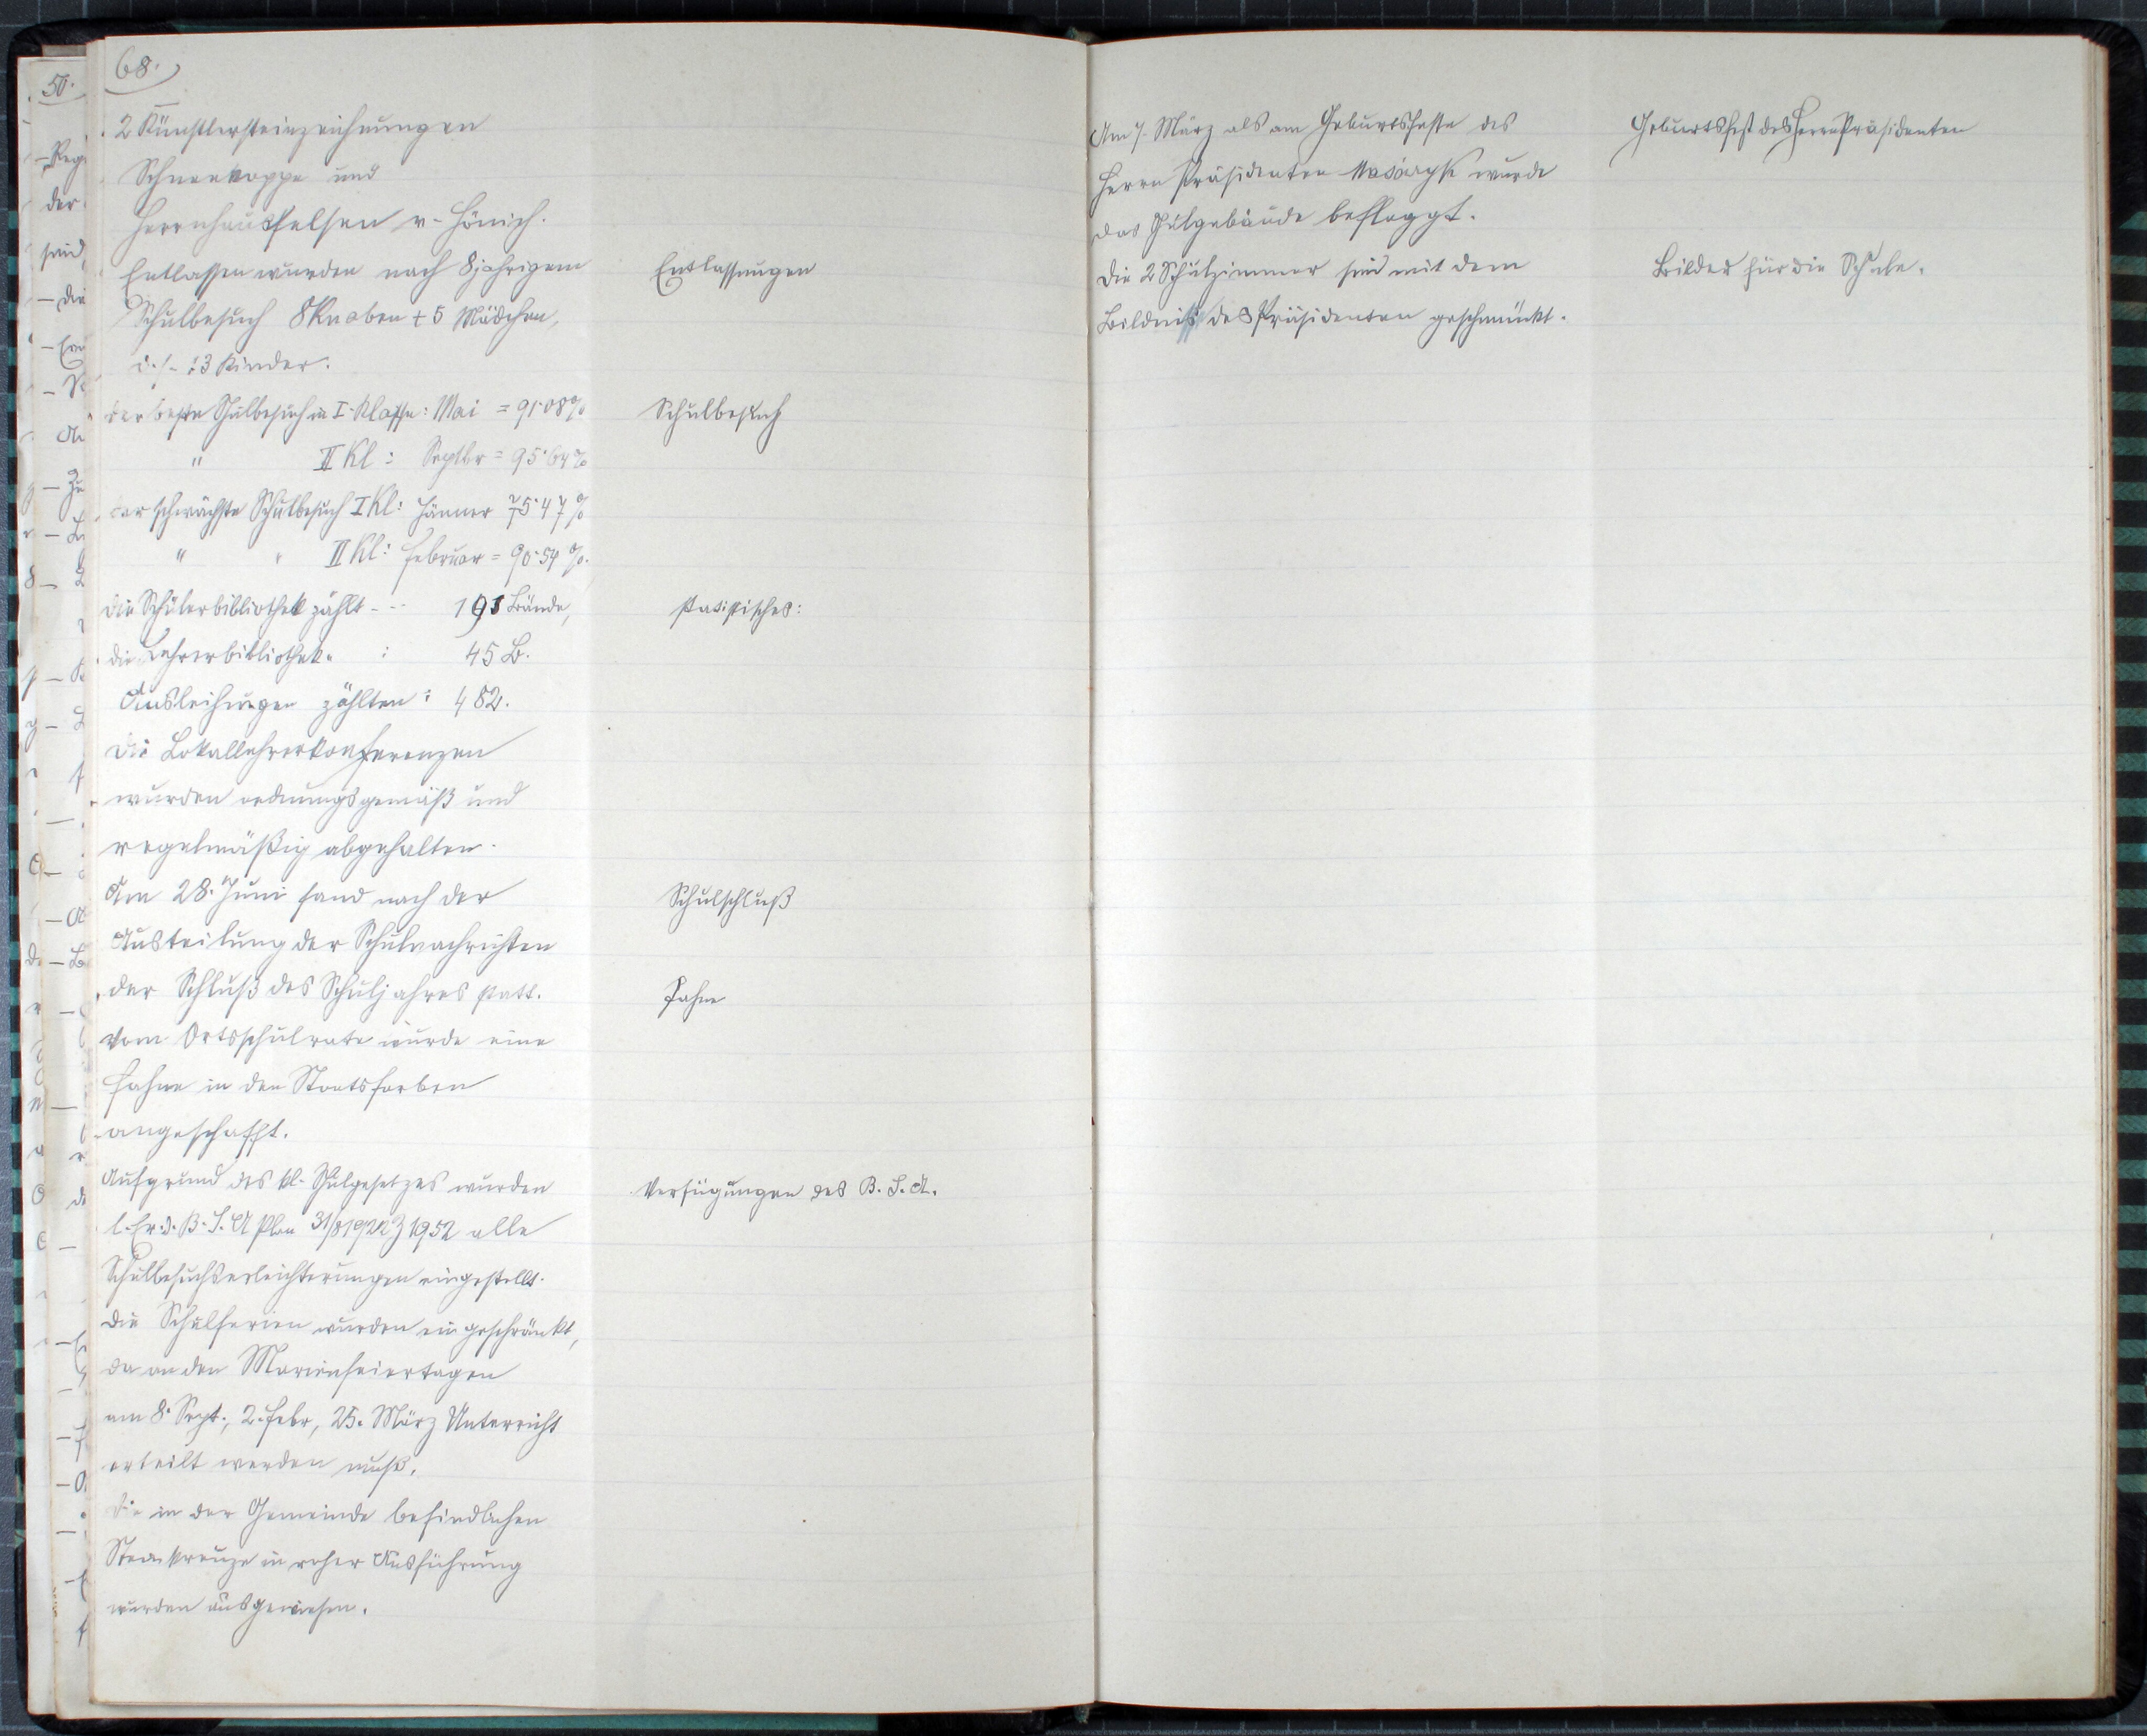 68.
2 Künstlersteinzeichnungen
Schneekoppe und
Herrnhausfelsen v. Hönich.
Entlassen wurden nach 8jährigem
Entlassungen
Schulbesuch 8 Knaben + 5 Mädchen,
d. s. 13 Kinder.
der beste Schulbesuch in I. Klasse: Mai = 91·08%
Schulbesuch
" II Kl: Septbr = 95·64%
der schwächste Schulbesuch I Kl: Jänner 75·47%
" " II Kl: Februar = 90·54%.
die Schülerbibliothek zählt - - - 191 Bände,
statistisches:
die Lehrerbibliothek " : 45 B.
Ausleihungen zählten: 482.
Die Lokallehrerkonferenzen
wurden ordnungsgemäß und
regelmäßig abgehalten.
Am 28. Juni fand nach der
Schulschluß
Austeilung der Schulnachrichten
der Schluß des Schuljahres statt.
Fahne
Vom Ortsschulrate wurde eine
Fahne in den Staatsfarben
angeschafft.
Aufgrund des kl. Schulgesetzes wurden
Verfügungen des B. S. A.
l. Er. d. B. S. A Plan 31/8 1922 Z 1952 alle
Schulbesuchserleichterungen eingestellt.
Die Schulferien wurden eingeschränkt,
da an den Marienfeiertagen
am 8. Sept., 2. Febr, 25. März Unterricht
erteilt werden muß.
Die in der Gemeinde befindlichen
Steinkreuze in roher Ausführung
wurden ausgewiesen.
Am 7. März als am Geburtsfeste des
Geburtsfest des Herrn Präsidenten
Herrn Präsidenten Masaryk wurde
das Schulgebäude beflaggt.
Die 2 Schulzimmer sind mit dem
Bilder für die Schule.
Bildnis des Präsidenten geschmückt.
50.